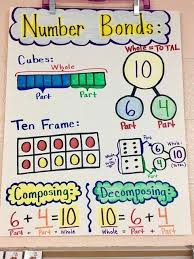 Number Bonds:
Whole = TOTAL
Cubes:
Whole
Part Part
10
6 4
Part Part
Ten Frame:
Part
Part
Whole
(Total)
10
Composing:
6 + 4 = 10
Part + Part = Whole
Decomposing:
10 = 6 + 4
Whole = Part + Part